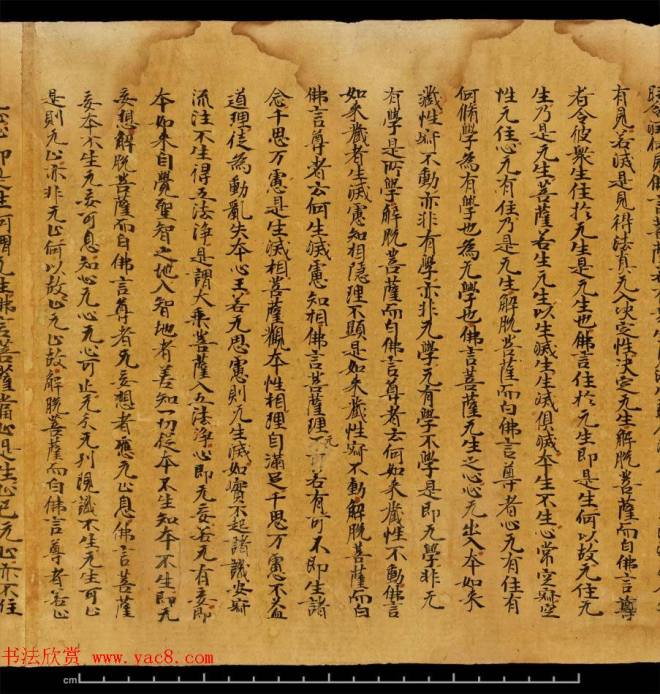 有見若滅是見得法真无入决定性决定无生解脫菩薩而白佛言尊
者令彼衆生住於无生是无生也佛言住於无生即是生何以故无住无
生乃是无生菩薩若生无生以生滅生生滅俱滅本生不生心常空寂空
性无住心无有住乃是无生解脫菩薩而白佛言尊者心无有住有
何脩學為有學也為无學也佛言菩薩无生之心心无出入本如來
藏性寂不動亦非有學亦非无學无有學不學是即无學非无
有學是所學解脫菩薩而白佛言尊者云何如來藏性不動佛言
如來藏者生滅慮知相隱理不顯是如來藏性寂不動解脫菩薩而白
佛言尊者云何生滅慮知相佛言菩薩理无可不若有可不即生諸
念千思万慮是生滅相菩薩觀本性相理自滿足千思万慮不益
道理徒為動亂失本心王若无思慮則无生滅如實不起諸識安寂
流注不生得五法淨是謂大乘菩薩入五法淨心即无妄若无有妄即
本如來自覺聖智之地入智地者善知一切從本不生知本不生即无
妄想解脫菩薩而白佛言尊者无妄想者應无止息佛言菩薩
妄本不生无妄可息知心无心无心可止无分无別現識不生无生可止
是則无止亦非无止何以故止无止故解脫菩薩而白佛言尊者若止
止即是生何謂无生佛言菩薩當止是生止已无止亦不住
书法欣赏 www.yac8.com
cm